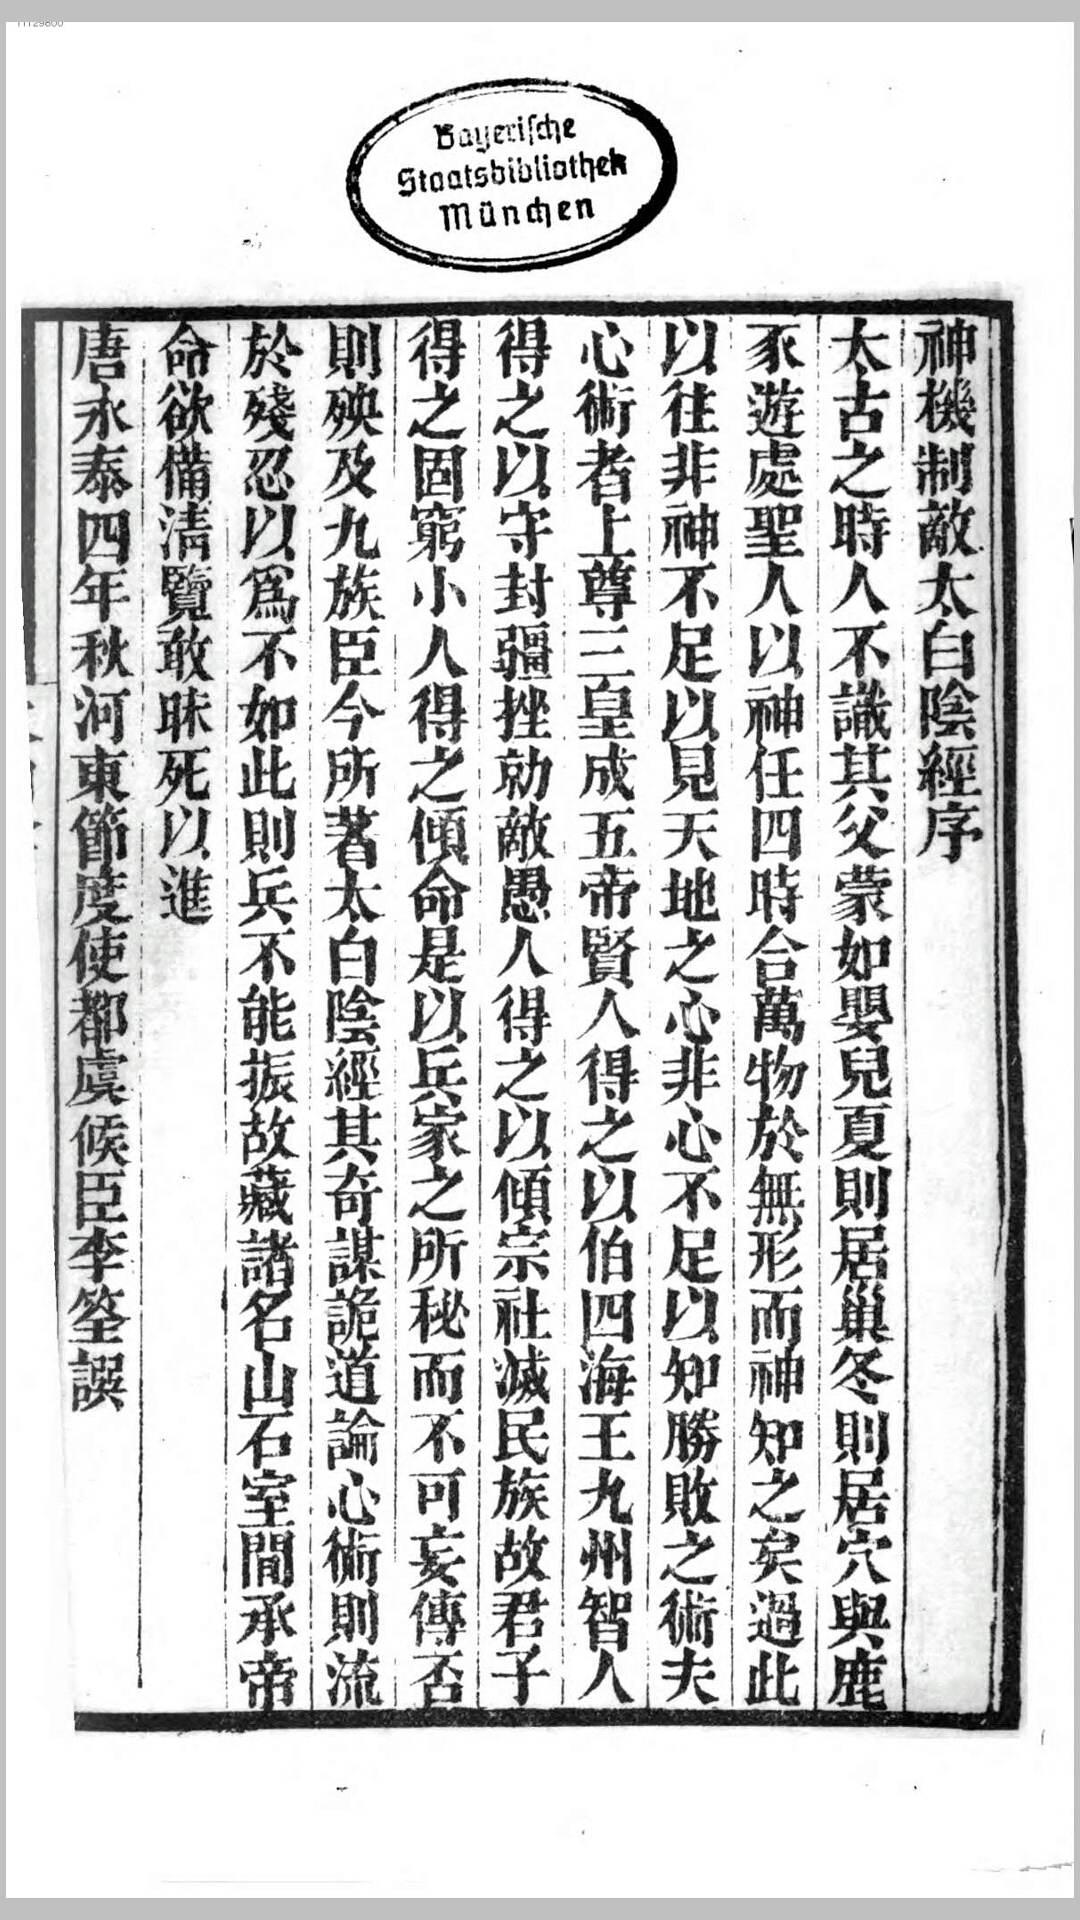 Bayerische
Staatsbibliothek
München
神機制敵太白陰經序
太古之時人不識其父蒙如嬰兒夏則居巢冬則居穴與鹿
豕遊處聖人以神任四時合萬物於無形而神知之矣過此
以往非神不足以見天地之心非心不足以知勝敗之術夫
心術者上尊三皇成五帝賢人得之以伯四海王九州智人
得之以守封疆挫勍敵愚人得之以傾宗社滅民族故君子
得之固窮小人得之傾命是以兵家之所秘而不可妄傳否
則殃及九族臣今所著太白陰經其奇謀詭道論心術則流
於殘忍以爲不如此則兵不能振故藏諸名山石室間承帝
命欲備淸覽敢昧死以進
唐永泰四年秋河東節度使都虞候臣李筌譔